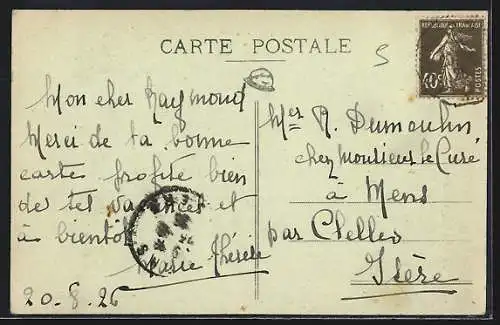 CARTE POSTALE
5
REPUBLIQUE FRANCAISE
40c
POSTES
Mon cher Raymond
Merci de ta bonne
carte profite bien
de tes vacances et
à bientôt
Marie Thérèse
20.8.26
Mer R. Dumoulin
chez Monsieur le Curé
à Mens
par Clelles
Isère